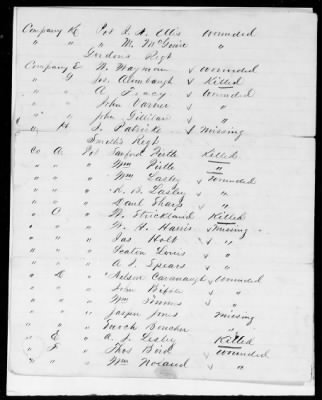 Company K Pvt J. A. Ellis wounded
" " " M. McGuire "
Gordons Regt
Company E W. Wayman v wounded
" G Jos. v Killed
" " A Tracy v Wounded
" " John Varner v "
" " John Gillilan v "
" H J. Patricke v Missing
Smiths Regt
Co A Pvt Sanford Pirtle Killed
" " " Wm Pirtle "
" " " Wm Lasley v Wounded
" " " R. B. Lasley v "
" " " Saul Sharp v "
" C " W. Strickland Killed
" " " W. H. Harris v Missing
" " " Jas Holt v "
" " " Seaton Lewis v "
" " " A. J. Spears v "
" D " Nelson Cavanaugh v Wounded
" " " John v "
" " " Wm Simms v "
" " " Jasper Jones Missing
" " " Enoch "
" E " A. J. Lesley Killed
" F " Thos Bird v Wounded
" " " Wm Noland v "